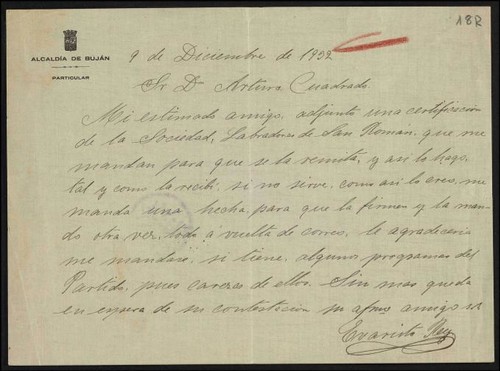 18R
ALCALDÍA DE BUJÁN
PARTICULAR
9 de Diciembre de 1932
Sr. D. Arturo Cuadrado.
Mi estimado amigo, adjunto una certificación
de la Sociedad, Labradores de San Roman, que me
mandan para que se la remita, y asi lo hago,
tal y como la recibí; si no sirve, como asi lo creo, me
manda una hecha, para que la firmen y la man-
do otra vez, todo á vuelta de correo, le agradeceria
me mandase, si tiene, algunos programas del
Partido, pues carezco de ellos. Sin mas queda
en espera de su contestacion su afmo amigo
Evaristo Rey